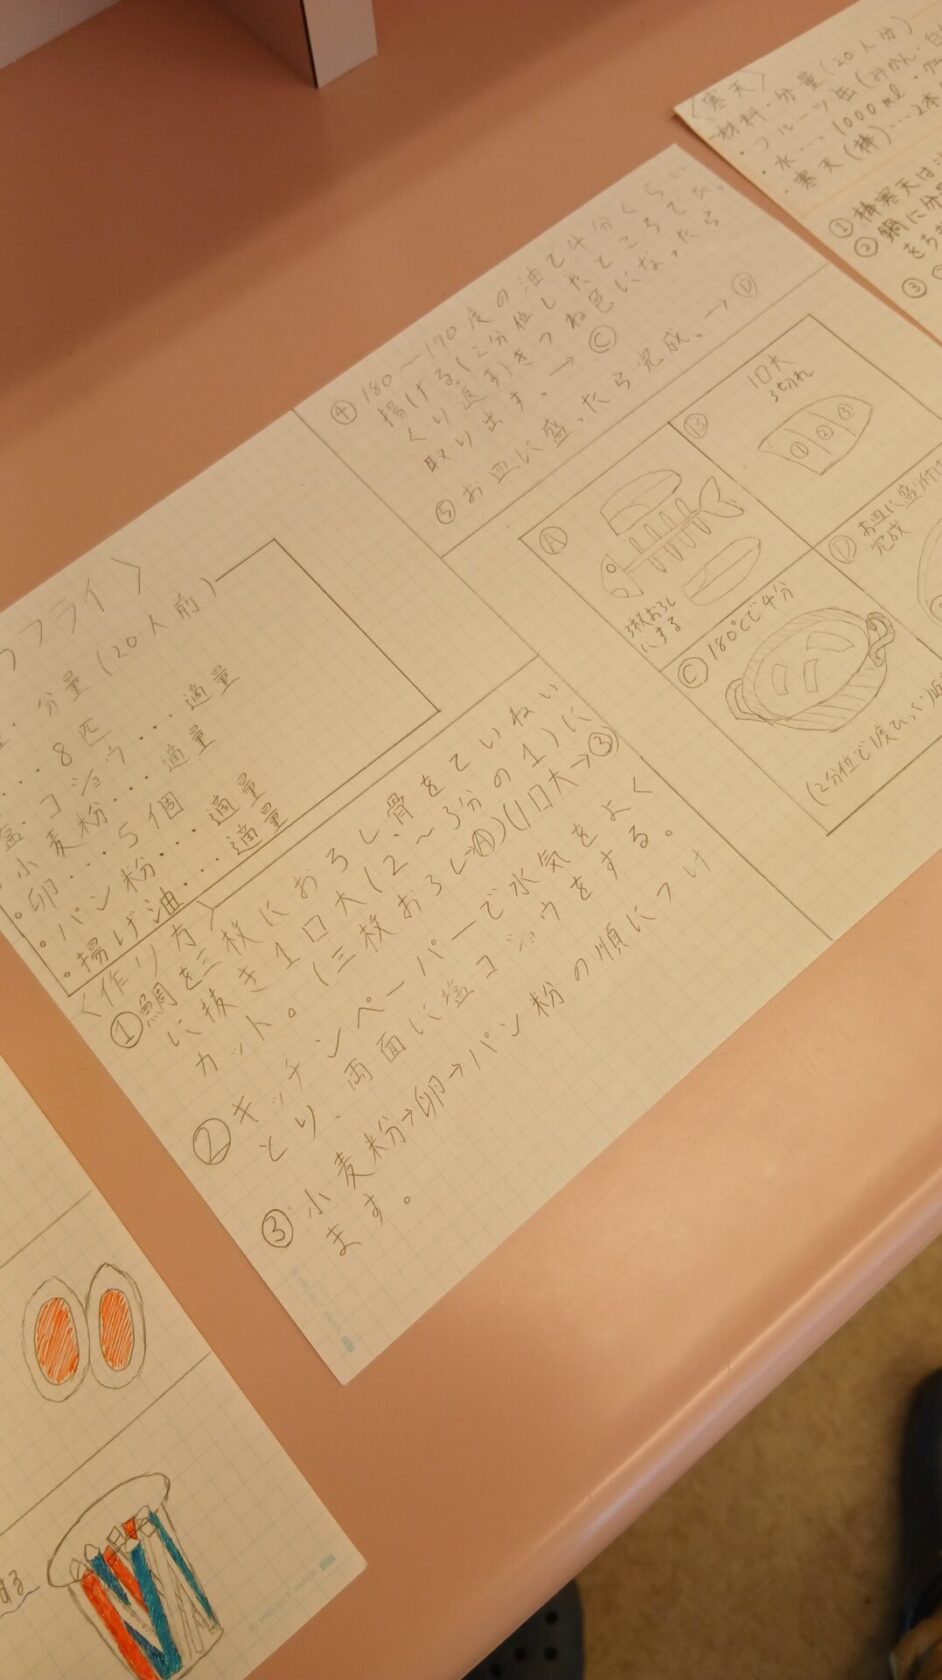 フライ〉
分量(20人前)
・・・8匹
塩・コショウ・・・適量
・小麦粉・・・適量
・卵・・・5個
・パン粉・・・適量
・揚げ油・・・適量
〈作り方〉
①鯛を三枚におろし、骨をていねい
に抜き1口大(2〜3分の1)に
カット。(三枚おろし→Ⓐ)(1口大→③)
②キッチンペーパーで水気をよく
とり、両面に塩コショウをする。
③小麦粉→卵→パン粉の順につけ
ます。
④180〜190度の油で4分くらい
揚げる。(2分位したところでひっ
くり返す)きつね色になったら
取り出す。→Ⓒ
⑤お皿に盛ったら完成。→Ⓓ
Ⓐ
3枚おろし
にする
Ⓑ
1口大
3切れ
① ② ③
Ⓒ 180℃で4分
(2分位で1度ひっくり返
Ⓓ お皿に盛り付け
完成
〈寒天〉
材料・分量(20人分)
・フルーツ缶(みかん・白
・水・・・1000ml
・寒天(棒)・・・2本
①棒寒天は
②鍋に
をち
③
PROJECT PAPER